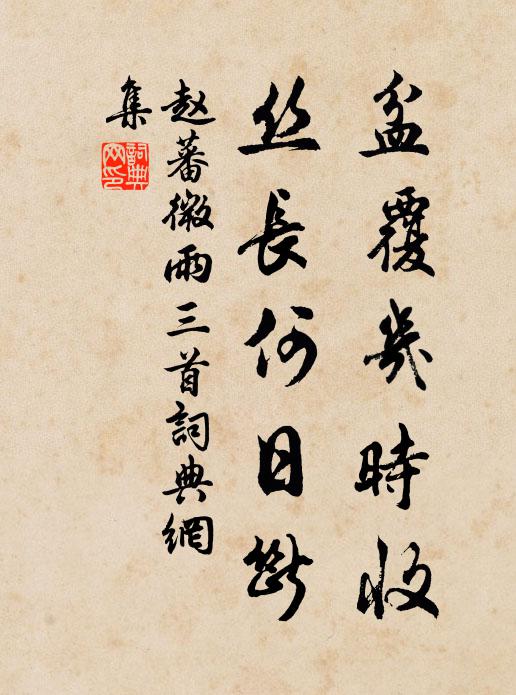 盆覆幾時收
丝長何日斷
赵蕃微雨三首詞典網
集
詞典
网印